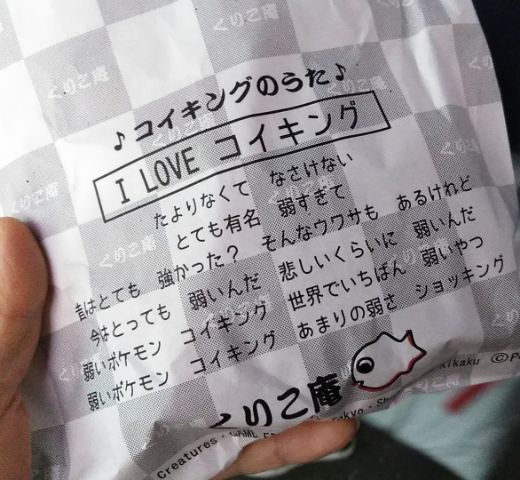 ♪コイキングのうた♪
I LOVE コイキング
たよりなくて なさけない
とても有名 弱すぎて
昔はとても 強かった? そんなウワサも あるけれど
今はとっても 弱いんだ 悲しいくらいに 弱いんだ
弱いポケモン コイキング 世界でいちばん 弱いやつ
弱いポケモン コイキング あまりの弱さ ショッキング
くりこ庵
Creatures・GAME
くりこ庵